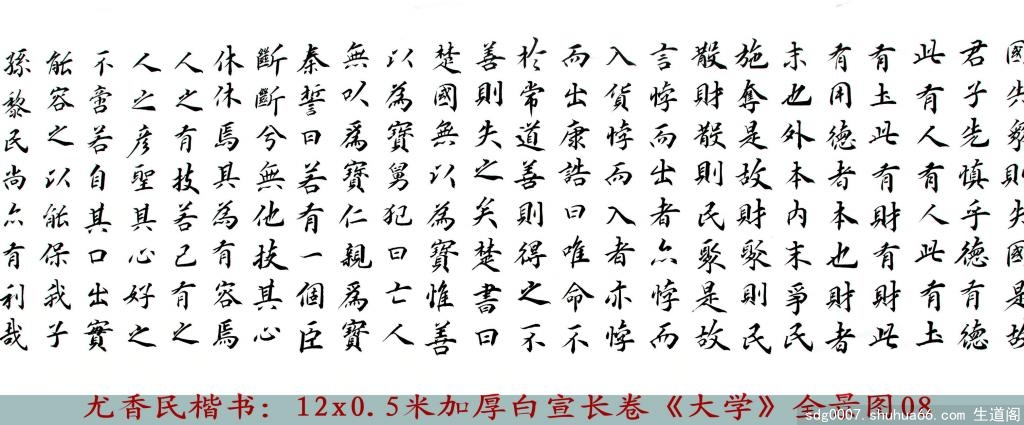 國失眾則失國是故
君子先慎乎德有德
此有人有人此有土
有土此有財有財此
有用德者本也財者
末也外本內末爭民
施奪是故財聚則民
散財散則民聚是故
言悖而出者亦悖而
入貨悖而入者亦悖
而出康誥曰唯命不
於常道善則得之不
善則失之矣楚書曰
楚國無以為寶惟善
以為寶舅犯曰亡人
無以為寶仁親為寶
秦誓曰若有一個臣
斷斷兮無他技其心
休休焉其為有容焉
人之有技若己有之
人之彥聖其心好之
不啻若自其口出實
能容之以能保我子
孫黎民尚亦有利哉
尤香民楷书：12x0.5米加厚白宣长卷《大学》全景图08
sdg0007.shuhua66.com 生道阁